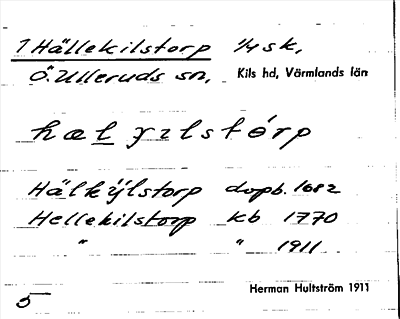 1 Hällekilstorp 1/4 sk,
Ö. Ulleruds sn, Kils hd, Värmlands län
hæl yılstórp
Hälkijlstorp dopb. 1682
Hellekilstorp kb 1770
" " 1911
Herman Hultström 1911
5